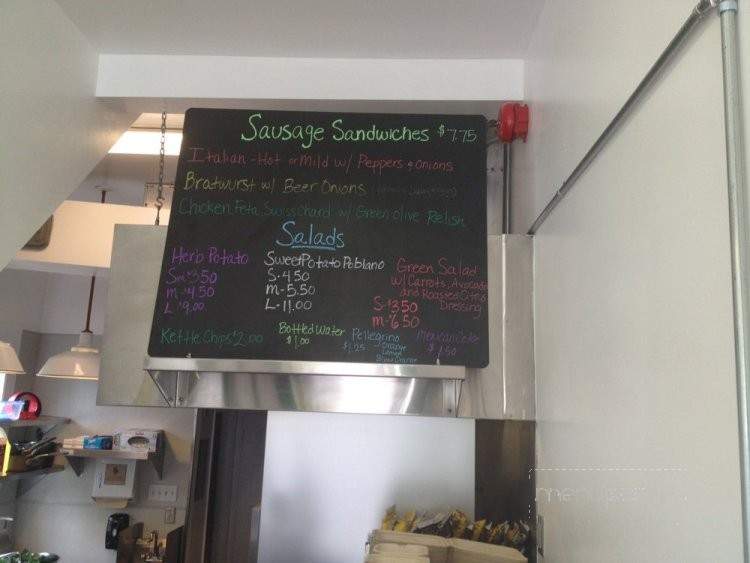 Sausage Sandwiches $7.75
Italian - Hot or Mild w/ Peppers & Onions
Bratwurst w/ Beer Onions
Chicken Feta, Swiss Chard w/ Green Olive Relish
Salads
Herb Potato
Sm $3.50
m - $4.50
L $9.00
Sweet Potato Poblano
S - 4.50
m - 5.50
L - 11.00
Green Salad
w/ Carrots, Avocado
and Roasted Citrus
Dressing
S - $3.50
m - 6.50
Kettle Chips $2.00
Bottled Water
$1.00
Pellegrino
$1.25 Orange
Lemon
Blood Orange
Mexican Coke
$1.50
menupix